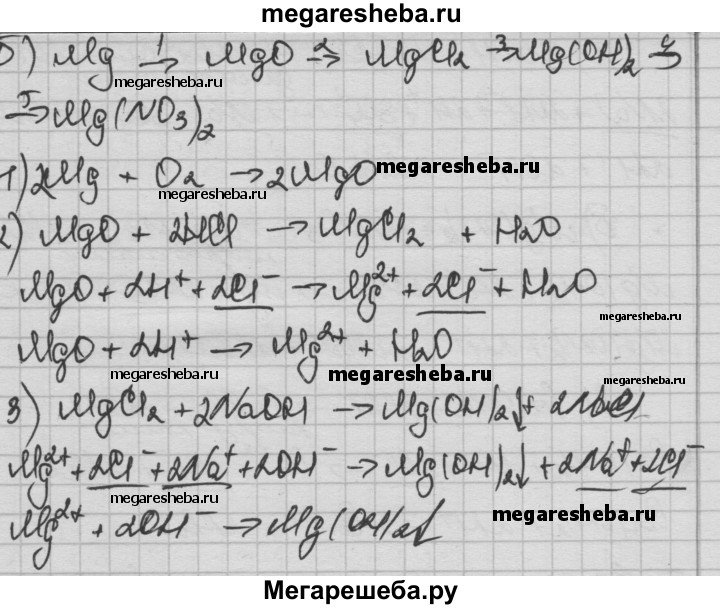 megaresheba.ru
б) Mg 1→ MgO 2→ MgCl2 3→ Mg(OH)2 4→
5→ Mg(NO3)2
megaresheba.ru
megaresheba.ru
1) 2Mg + O2 → 2MgO
megaresheba.ru
megaresheba.ru
2) MgO + 2HCl → MgCl2 + H2O
MgO + 2H⁺ + 2Cl⁻ → Mg²⁺ + 2Cl⁻ + H2O
megaresheba.ru
MgO + 2H⁺ → Mg²⁺ + H2O
megaresheba.ru
megaresheba.ru
megaresheba.ru
3) MgCl2 + 2NaOH → Mg(OH)2↓ + 2NaCl
Mg²⁺ + 2Cl⁻ + 2Na⁺ + 2OH⁻ → Mg(OH)2↓ + 2Na⁺ + 2Cl⁻
megaresheba.ru
Mg²⁺ + 2OH⁻ → Mg(OH)2↓
megaresheba.ru
Мегарешеба.ру